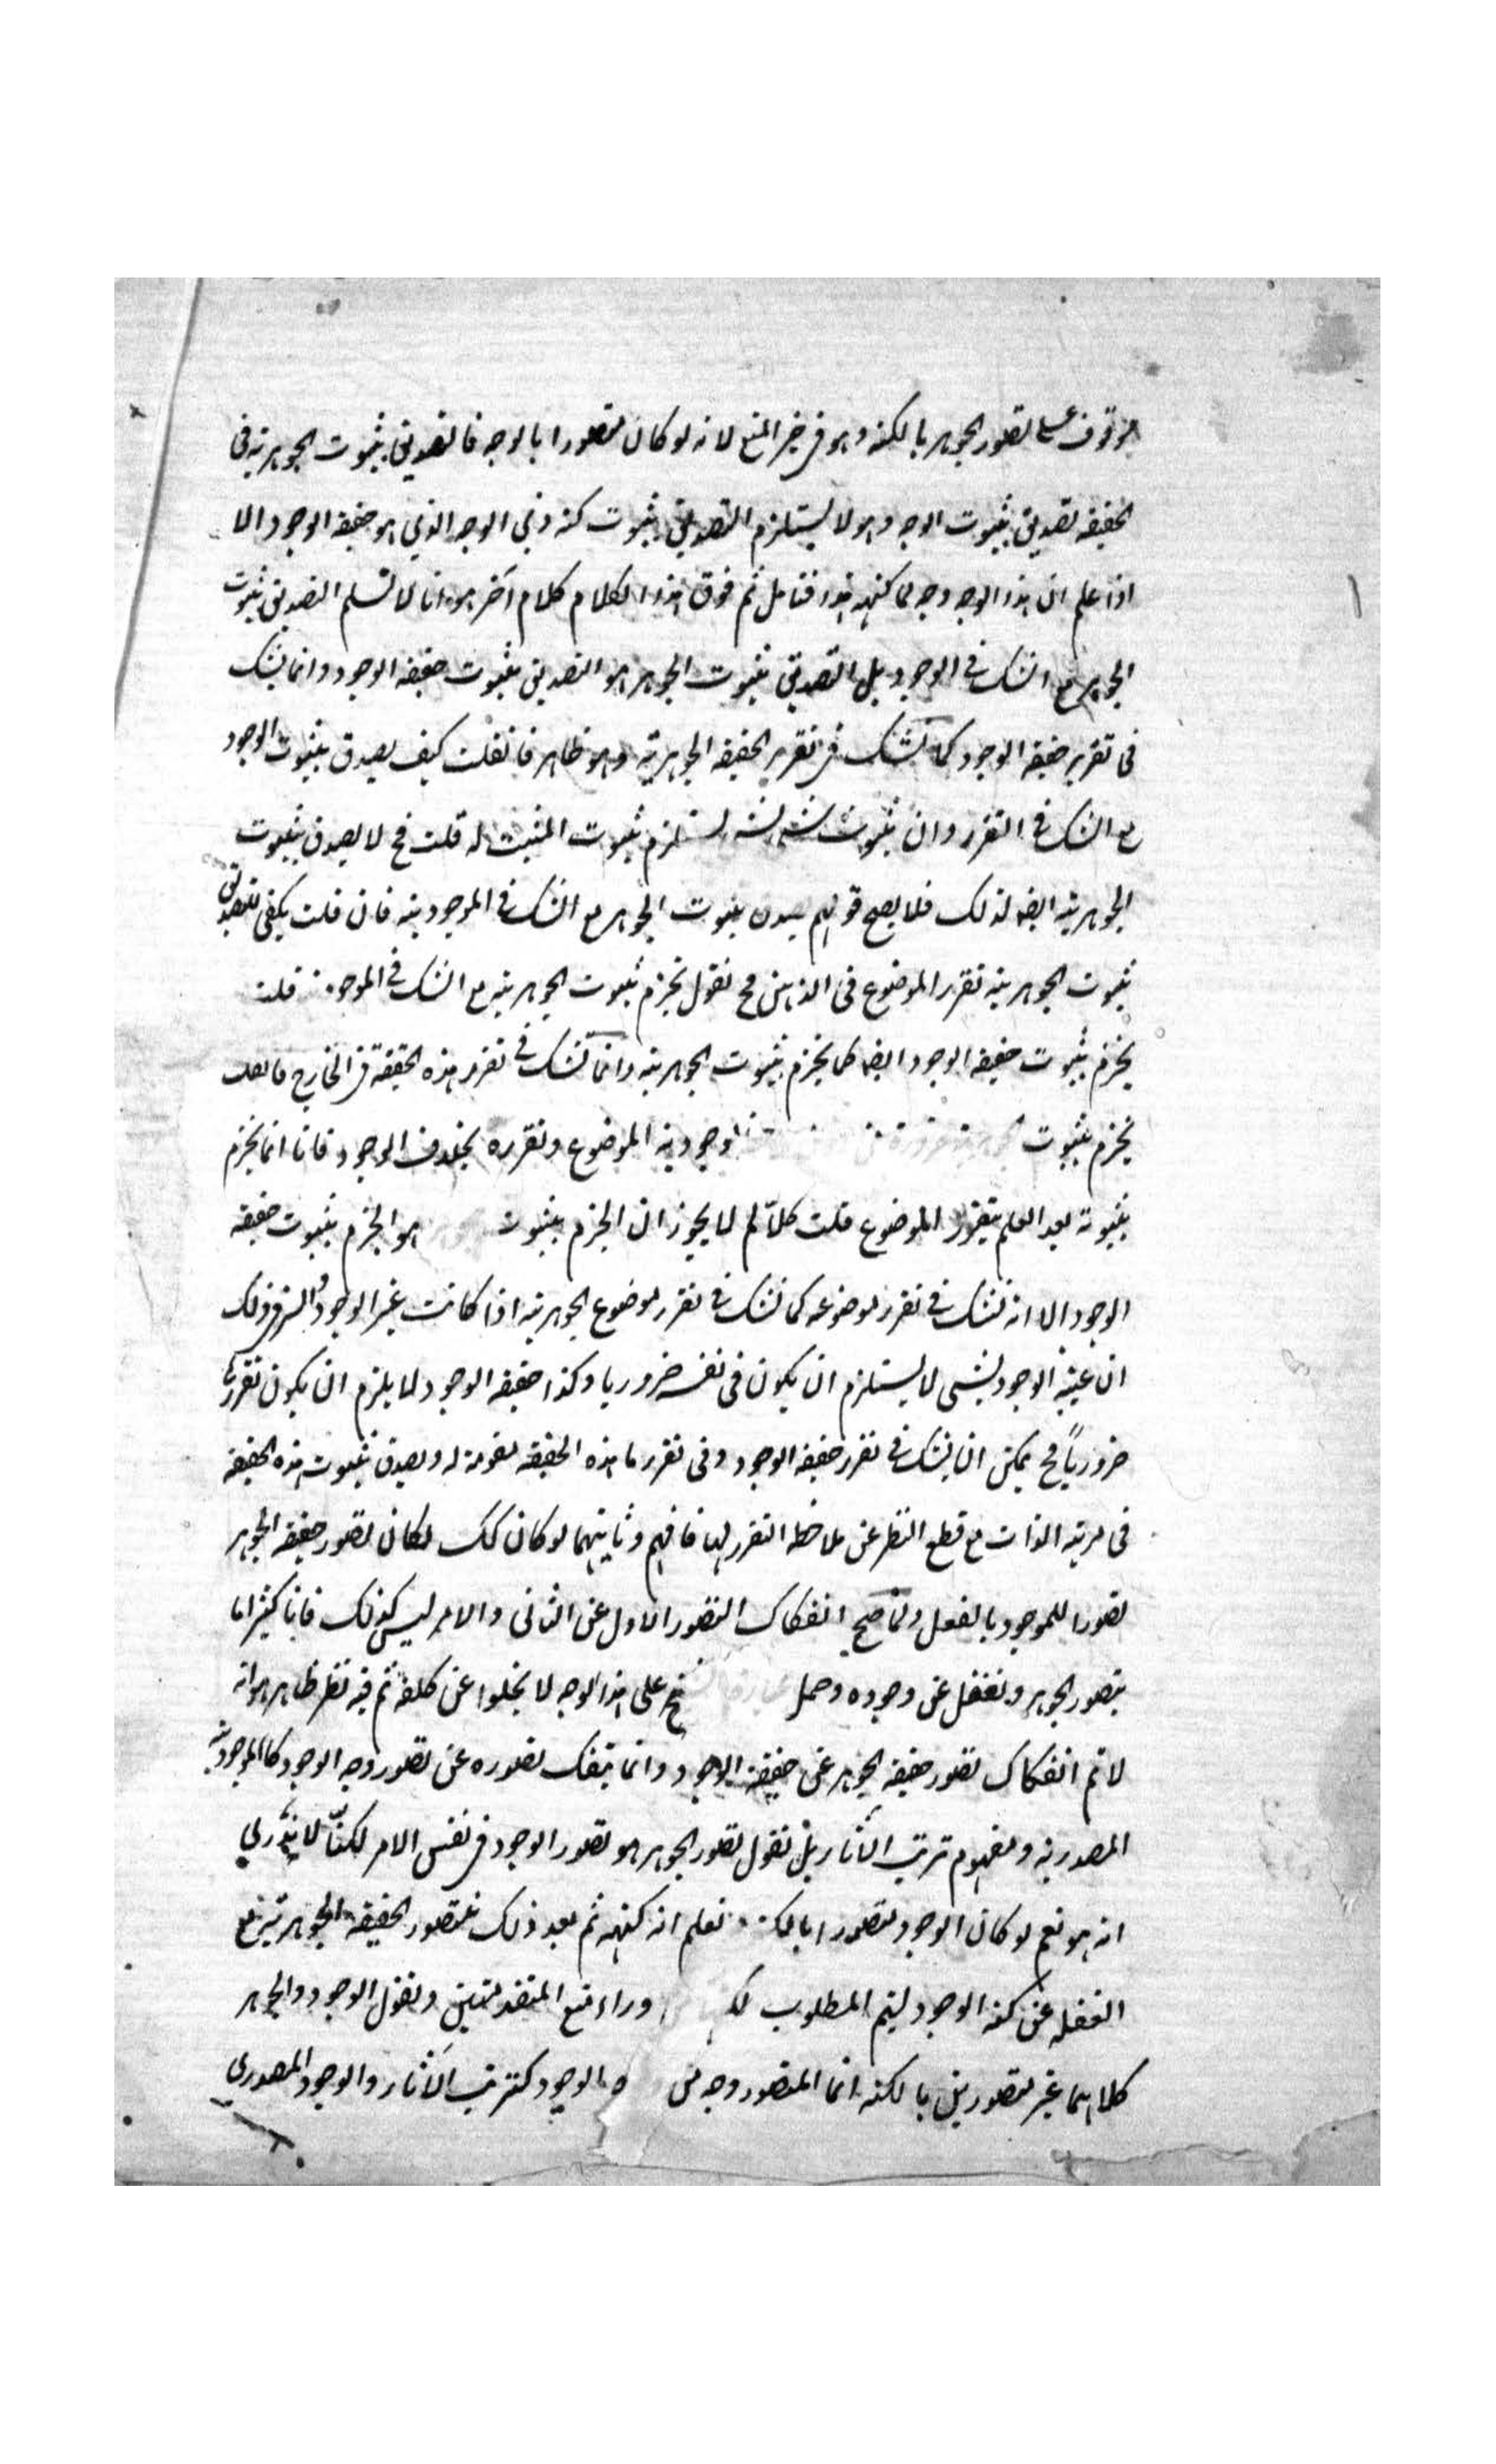 موقوف على تصور الجوهر بالكنه وهو في حيز المنع لانه لو كان متصورا بالوجه فالتصديق بثبوت الجوهرية في
الحقيقة تصديق بثبوت الوجه وهو لا يستلزم التصديق بثبوت كنه ذي الوجه الذي هو حقيقة الوجود الا
اذا علم ان هذا الوجه وجه لما كنهه هذا فتامل ثم فوق هذا الكلام كلام آخر هو انا لا نسلم التصديق بثبوت
الجوهر مع الشك في الوجود بل التصديق بثبوت الجوهر هو التصديق بثبوت حقيقة الوجود وانما يشك
في تقرير حقيقة الوجود كما نشك في تقرير الحقيقة الجوهرية وهو ظاهر فان قلت كيف يصدق بثبوت الوجود
مع الشك في التقرر وان ثبوت شئ لشئ يستلزم ثبوت المثبت له قلت فح لا يصدق بثبوت
الجوهرية ايضا لذلك فلا يصح قولهم يصدق بثبوت الجوهر مع الشك في الموجودية فان قلت يكفي لتصديق
ثبوت الجوهرية تقرر الموضوع في الذهن فح نقول نجزم بثبوت الجوهرية مع الشك في الموجودية قلت
نجزم بثبوت حقيقة الوجود ايضا كما نجزم بثبوت الجوهرية وانما نشك في تقرر هذه الحقيقة في الخارج
نجزم بثبوت وجودية الموضوع وتقرره بخلاف الوجود فانا انما نجزم
بثبوته بعد العلم بتقرر الموضوع قلت كلا لم لا يجوز ان الجزم بثبوت هو الجزم بثبوت حقيقة
الوجود الا انه نشك في تقرر موضوعه كما نشك في تقرر موضوع الجوهرية اذا كانت غير الوجود والسر في ذلك
ان عينية الوجود لشئ لا يستلزم ان يكون في نفسه ضروريا وكذا حقيقة الوجود لا يلزم ان يكون تقررها
ضرورياً فح يمكن ان يشك في تقرر حقيقة الوجود وفي تقرر ما هذه الحقيقة مقومة له ويصدق بثبوت هذه الحقيقة
في مرتبة الذات مع قطع النظر عن ملاحظة التقرر لها فافهم وثانيهما لو كان كك لكان تصور حقيقة الجوهر
تصورا للموجود بالفعل ولما صح انفكاك التصور الاول عن الثاني والامر ليس كذلك فانا كثيرا ما
نتصور الجوهر ونغفل عن وجوده وحمل على هذا الوجه لا يخلوا عن كلفة ثم فيه نظر ظاهر هو انه
لا تم انفكاك تصور حقيقة الجوهر عن حقيقة الوجود وانما ينفك تصوره عن تصور وجه الوجود كالموجودية
المصدرية ومفهوم ترتب الآثار بل نقول تصور الجوهر هو تصور الوجود في نفس الامر لكنا لا ندري
انه هو نعم لو كان الوجود متصورا بالكنه نعلم انه كنهه ثم بعد ذلك نتصور الحقيقة الجوهرية مع
الغفلة عن كنه الوجود ليتم المطلوب وراء منع المتقدمتين ونقول الوجود والجوهر
كلاهما غير متصورين بالكنه انما المتصور وجه من الوجود كترتب الآثار والوجود المصدري